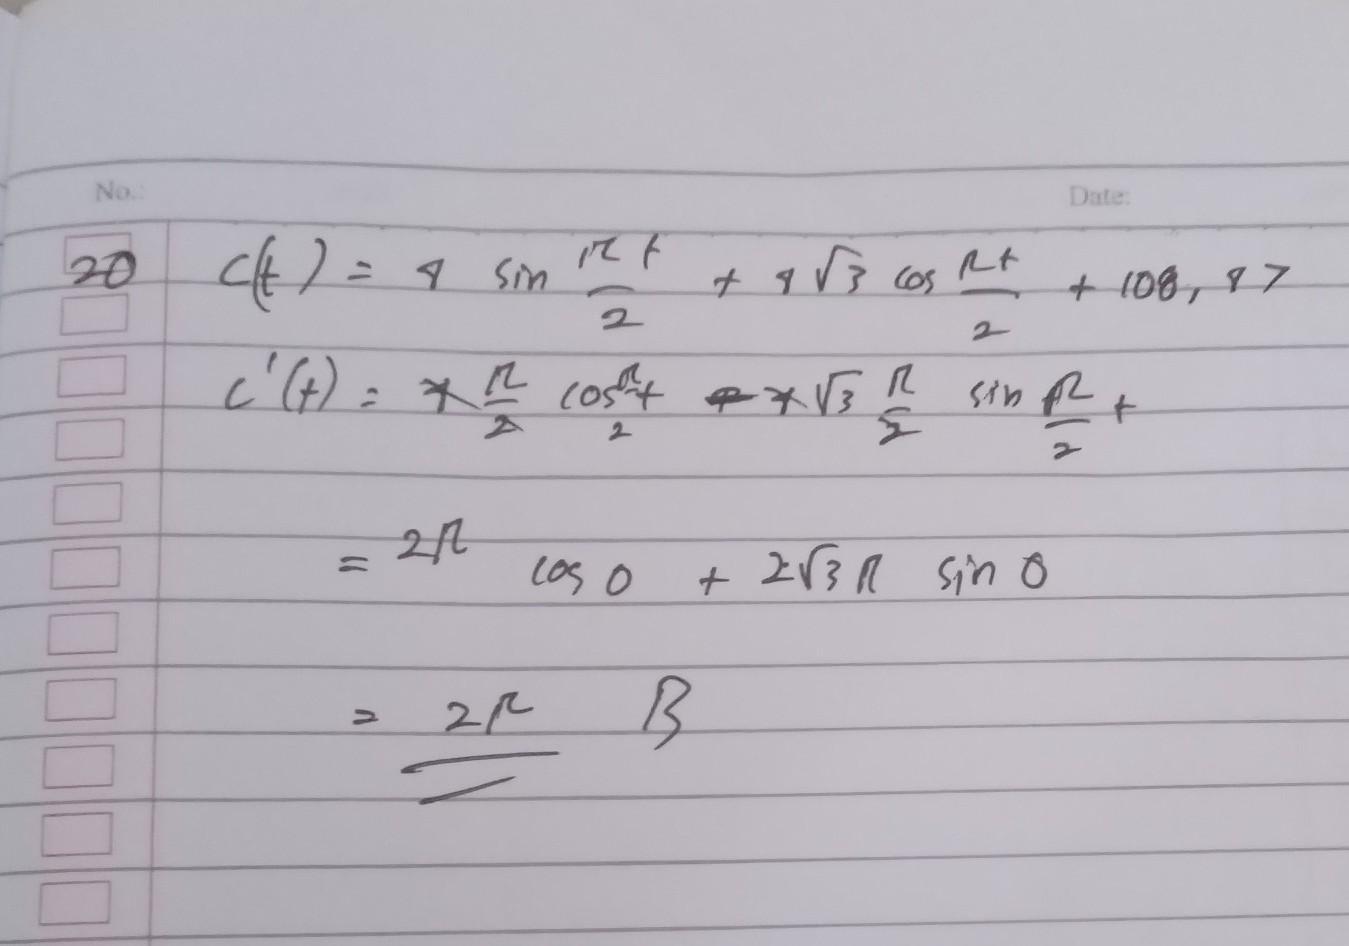 No.:
Date:
20 C(t) = 4 sin πt/2 + 4√3 cos πt/2 + 108,87
C'(t) = 4 π/2 cos πt/2 - 4√3 π/2 sin π/2 t
= 2π cos 0 + 2√3 π sin 0
= 2π B